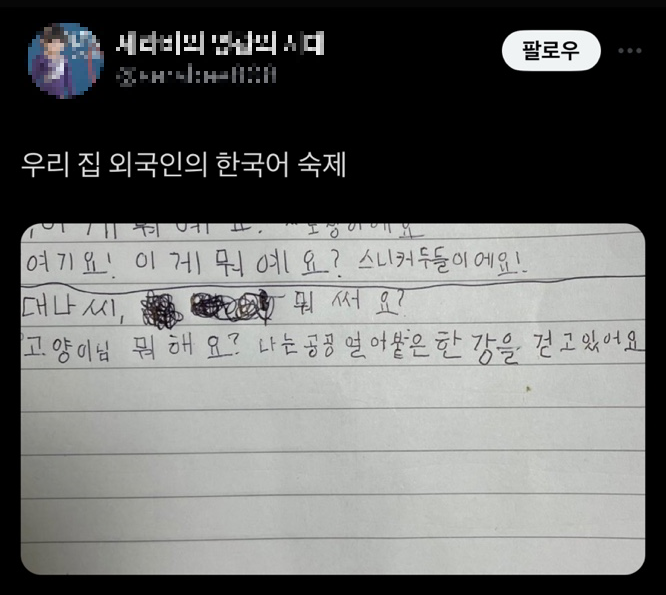 팔로우
우리 집 외국인의 한국어 숙제
뭐 예 요?
여기요! 이 게 뭐 예 요? 스니커두들이에요!
대나 씨, 뭐 써 요?
고양이님 뭐 해 요? 나는 공꽁 얼어붙은 한 강을 걷고있어요